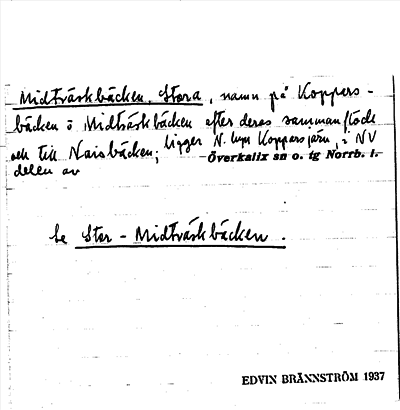 Midträskbäcken, Stora, namn på Koppers-
bäcken o Midträskbäcken efter deras sammanflöde
och till Naisbäcken; ligger N. om Koppersjärn, i NV
delen av Överkalix sn o. tg Norrb. l.
Se Stor-Midträskbäcken.
EDVIN BRÄNNSTRÖM 1937